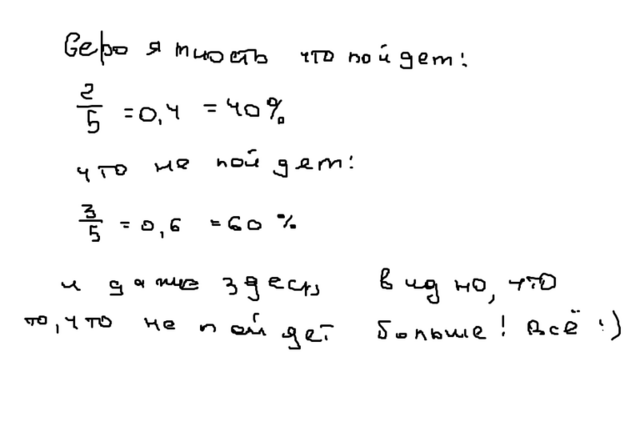 Вероятность что пойдет:
2/5 = 0,4 = 40%
что не пойдет:
3/5 = 0,6 = 60%
и даже здесь видно, что
то, что не пойдет больше! Всё :)